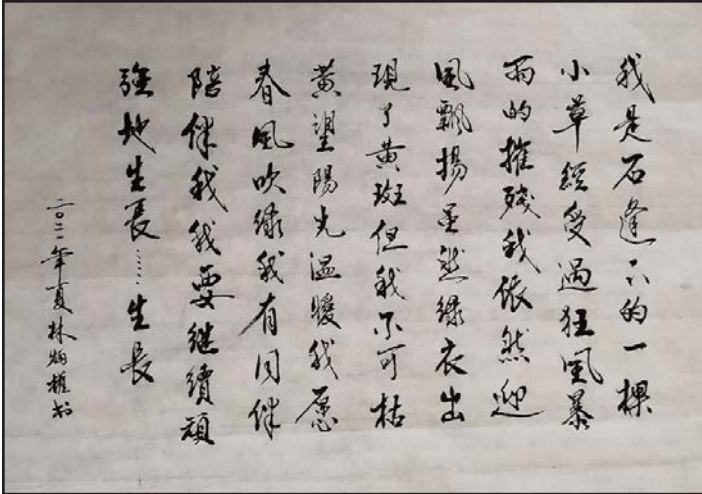 我是石逢下的一棵
小草經受過狂風暴
雨的摧殘我依然迎
風飄揚虽然绿衣出
現了黄斑但我不可枯
黄望陽光温暖我愿
春風吹绿我有同伴
陪伴我我要继續頑
强地生長……生長
二〇二二年夏林炳權书